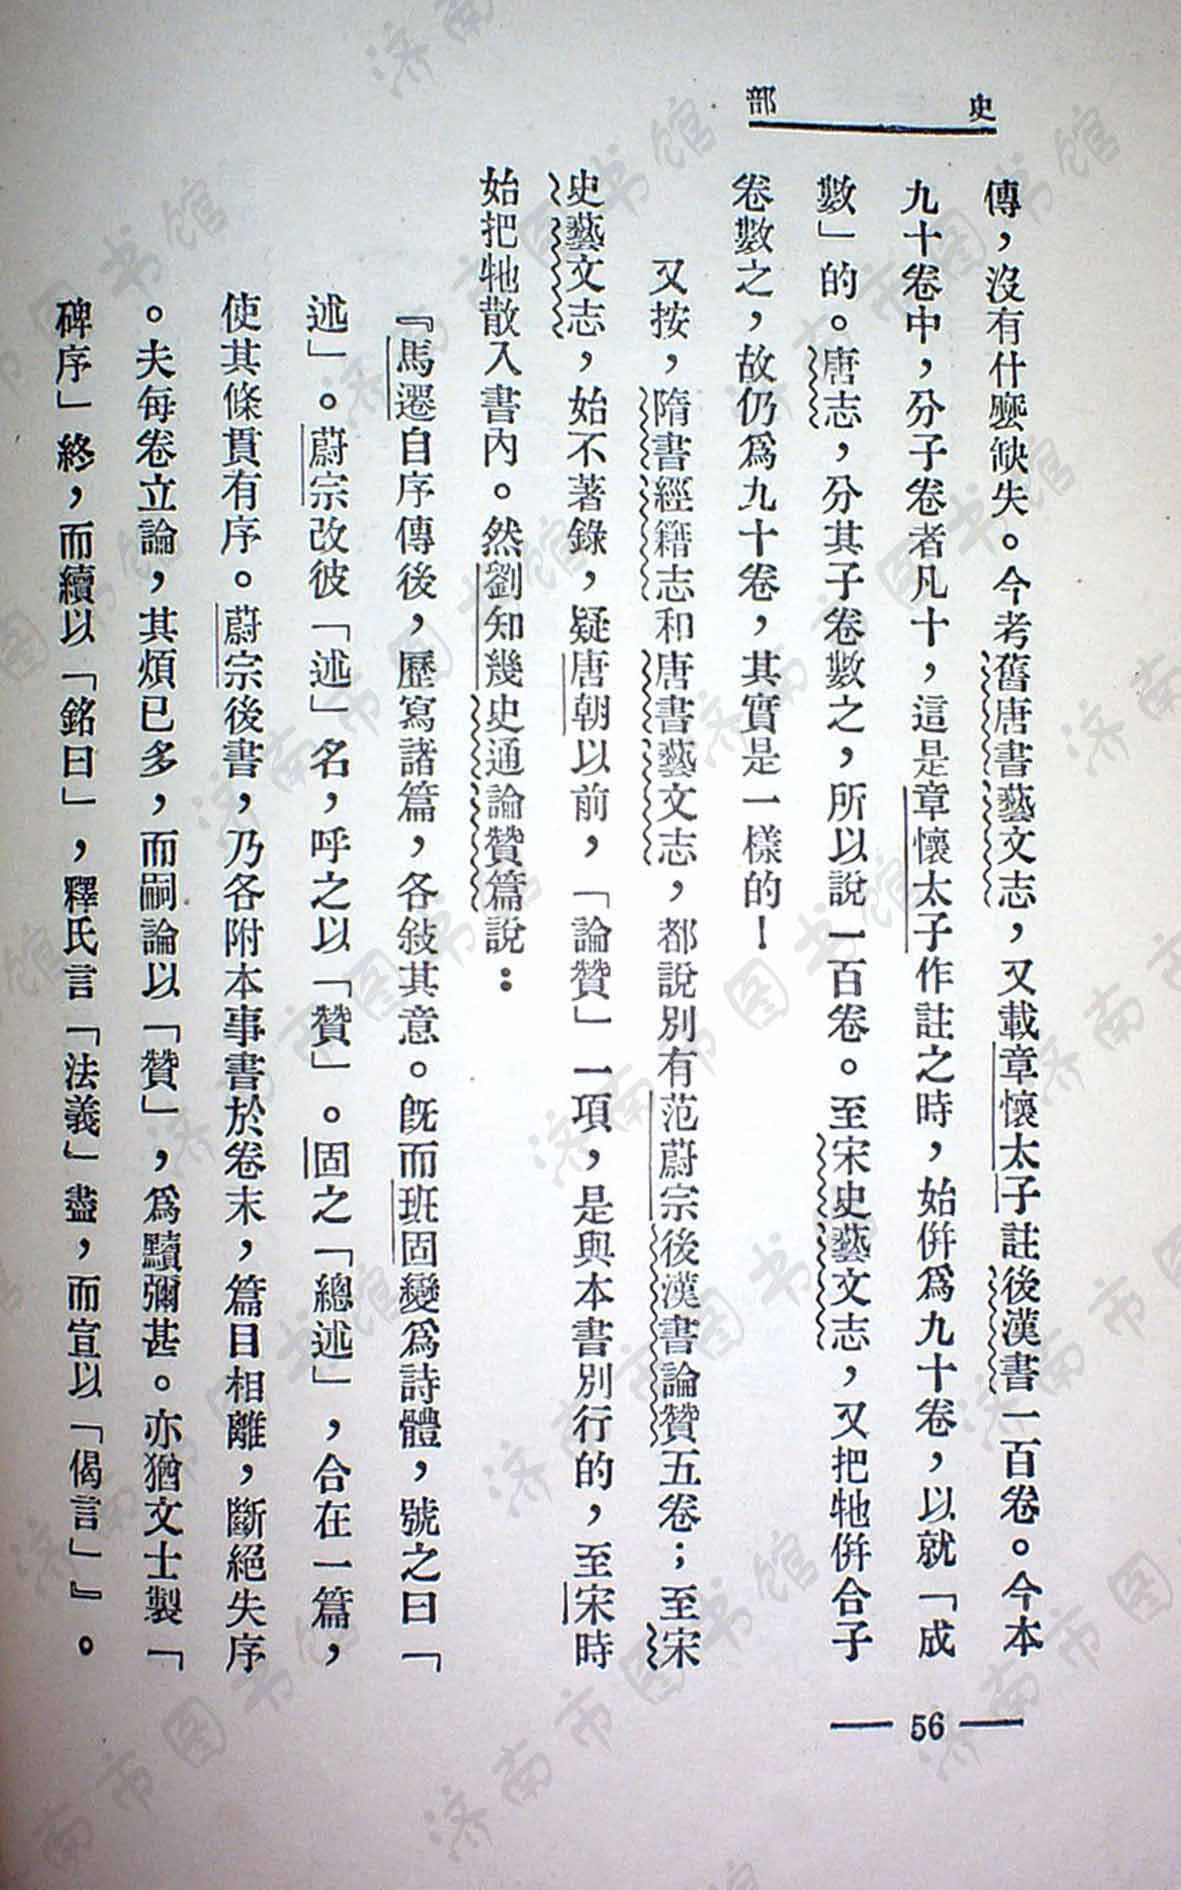 史部
傳，沒有什麼缺失。今考舊唐書藝文志，又載章懷太子註後漢書一百卷。今本
九十卷中，分子卷者凡十，這是章懷太子作註之時，始併爲九十卷，以就「成
數」的。唐志，分其子卷數之，所以說一百卷。至宋史藝文志，又把牠併合子
卷數之，故仍爲九十卷，其實是一樣的！
又按，隋書經籍志和唐書藝文志，都說別有范蔚宗後漢書論贊五卷；至宋
史藝文志，始不著錄，疑唐朝以前，「論贊」一項，是與本書別行的，至宋時
始把牠散入書內。然劉知幾史通論贊篇說：
『馬遷自序傳後，歷寫諸篇，各敍其意。旣而班固變爲詩體，號之曰「
述」。蔚宗改彼「述」名，呼之以「贊」。固之「總述」，合在一篇，
使其條貫有序。蔚宗後書，乃各附本事書於卷末，篇目相離，斷絕失序
。夫每卷立論，其煩已多，而嗣論以「贊」，爲黷彌甚。亦猶文士製「
碑序」終，而續以「銘曰」，釋氏言「法義」盡，而宣以「偈言」』。
— 56 —
济南市图书馆